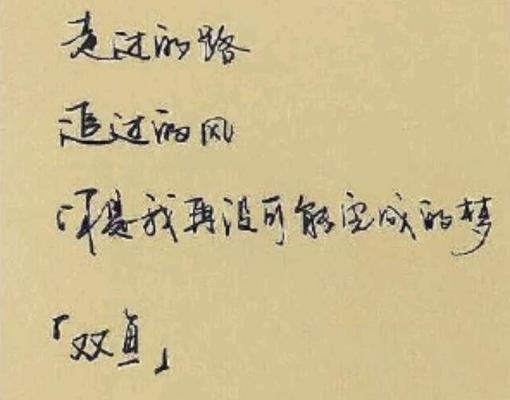 走过的路
追过的风
许是我再没可能完成的梦
「双鱼」